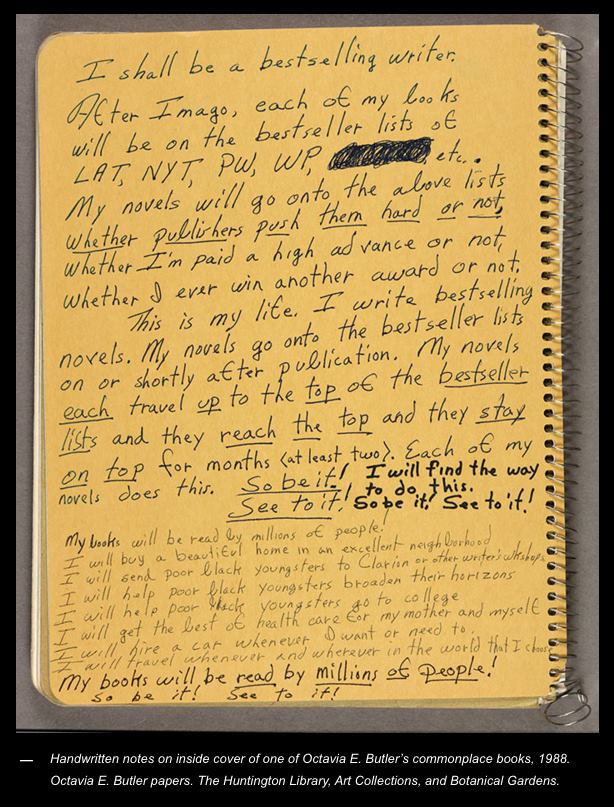 I shall be a bestselling writer.
After Imago, each of my books
will be on the bestseller lists of
LAT, NYT, PW, WP, etc..
My novels will go onto the above lists
whether publishers push them hard or not,
whether I'm paid a high advance or not,
whether I ever win another award or not.
This is my life. I write bestselling
novels. My novels go onto the bestseller lists
on or shortly after publication. My novels
each travel up to the top of the bestseller
lists and they reach the top and they stay
on top for months (at least two). Each of my
novels does this. So be it! I will find the way
See to it! to do this.
So be it! See to it!
My books will be read by millions of people!
I will buy a beautiful home in an excellent neighborhood
I will send poor black youngsters to Clarion or other writer's wkshops
I will help poor black youngsters broaden their horizons
I will help poor black youngsters go to college
I will get the best of health care for my mother and myself
I will hire a car whenever I want or need to.
I will travel whenever and wherever in the world that I choose
My books will be read by millions of people!
So be it! See to it!
— Handwritten notes on inside cover of one of Octavia E. Butler's commonplace books, 1988.
Octavia E. Butler papers. The Huntington Library, Art Collections, and Botanical Gardens.